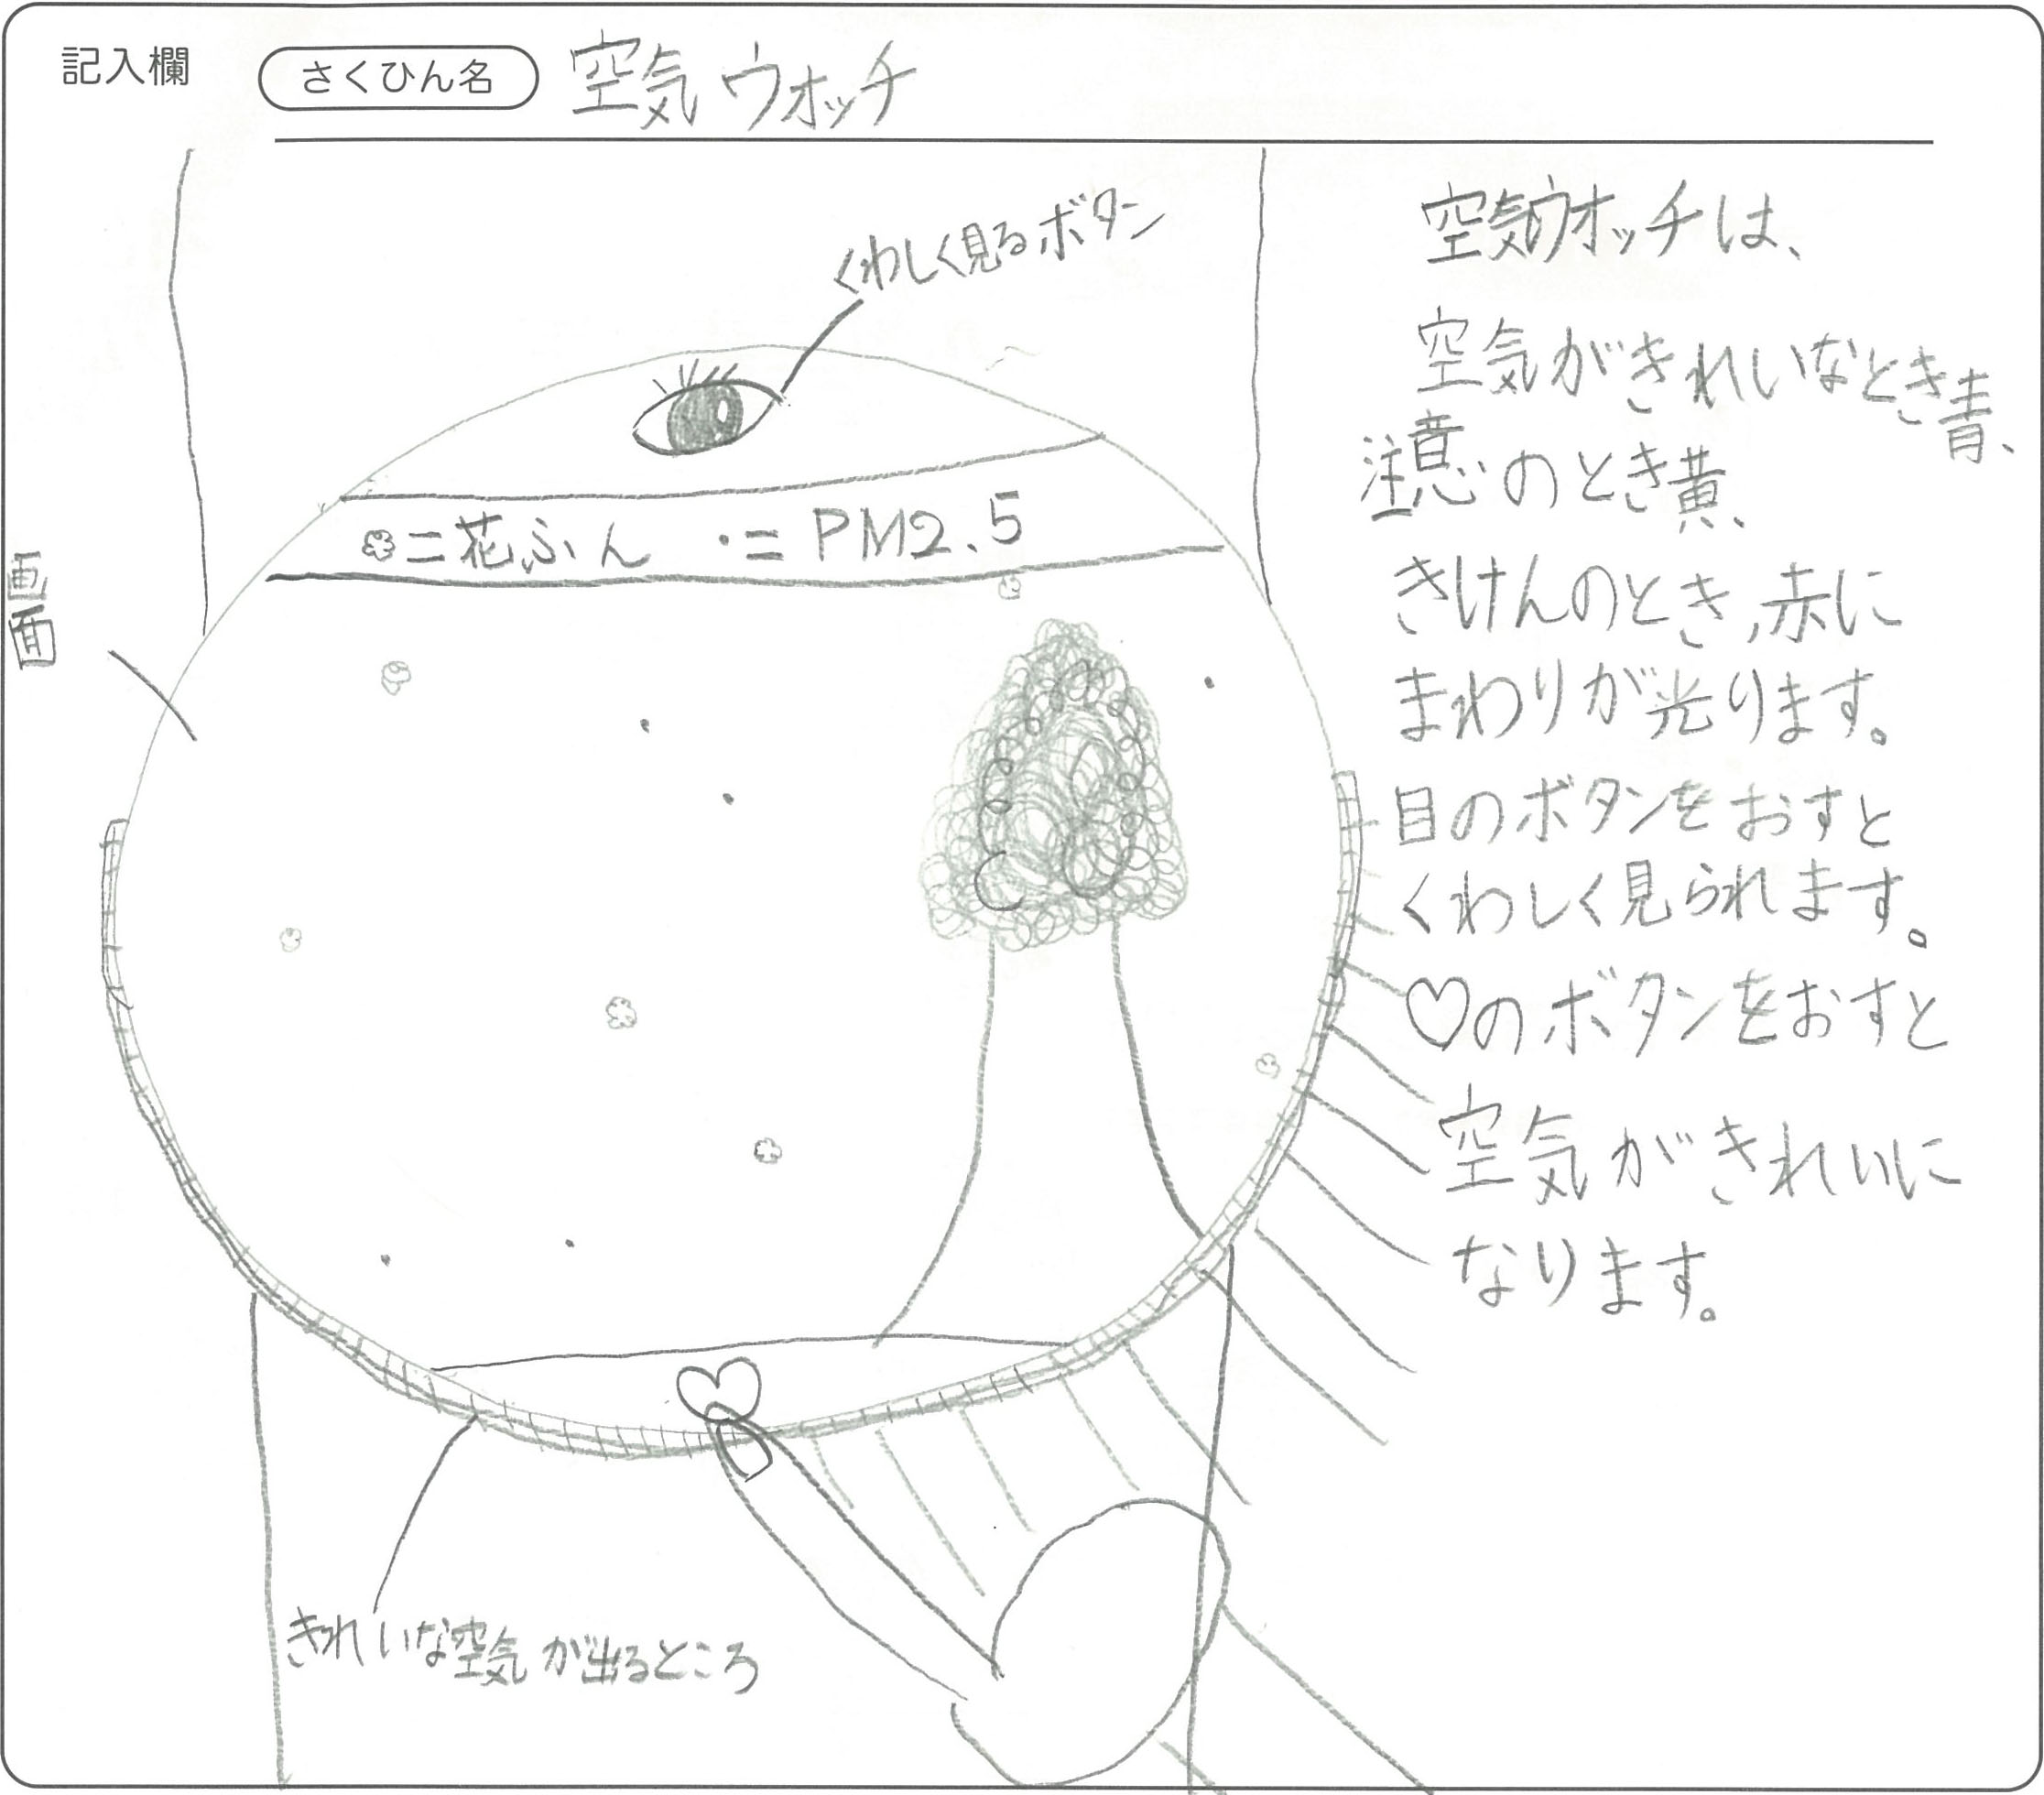 記入欄
さくひん名 空気ウォッチ
くわしく見るボタン
=花ふん ・=PM2.5
画面
きれいな空気が出るところ
空気ウォッチは、
空気がきれいなとき青、
注意のとき黄、
きけんのとき、赤に
まわりが光ります。
目のボタンをおすと
くわしく見られます。
♡のボタンをおすと
空気がきれいに
なります。